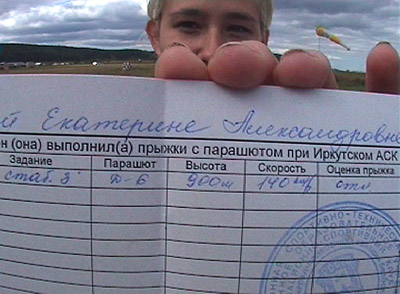 й Екатерине Александровне
ен (она) выполнил(а) прыжки с парашютом при Иркутском АСК
Задание Парашют Высота Скорость Оценка прыжка
стаб. 3" Д-6 900м 140 отл
СПОРТИВНО-ТЕХНИЧЕ